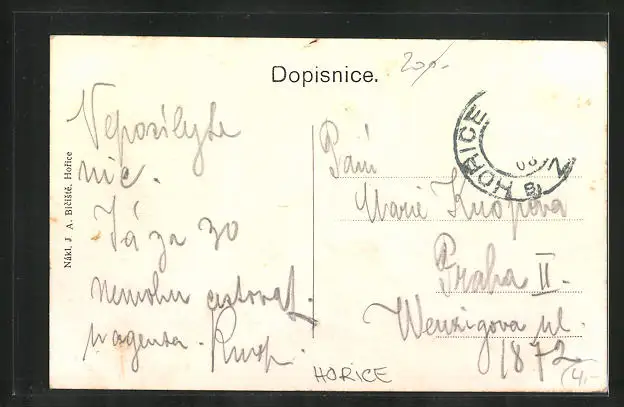 Dopisnice.
200.-
HOŘICE
Neposílejte
nic.
Já za 30
nemohu
agenta.
Paní
Marie Knopova
Praha II.
Wenzigova ul.
1872
Nákl. J. A. Bičiště, Hořice
HOŘICE
4.-